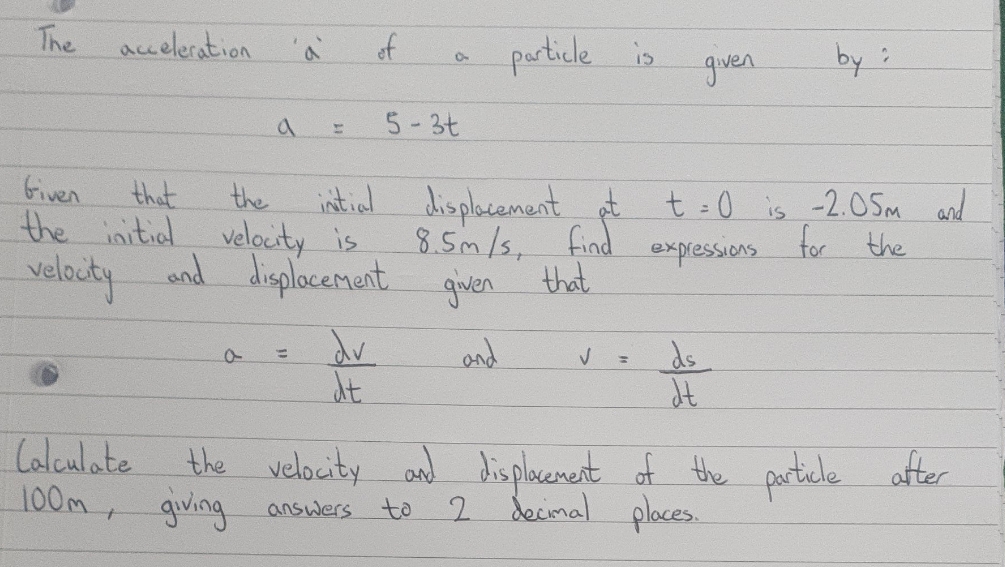 The acceleration 'a' of a particle is given by :
a = 5 - 3t
Given that the initial displacement at t = 0 is -2.05m and
the initial velocity is 8.5m/s, find expressions for the
velocity and displacement given that
a = dv/dt and v = ds/dt
Calculate the velocity and displacement of the particle after
100m, giving answers to 2 decimal places.